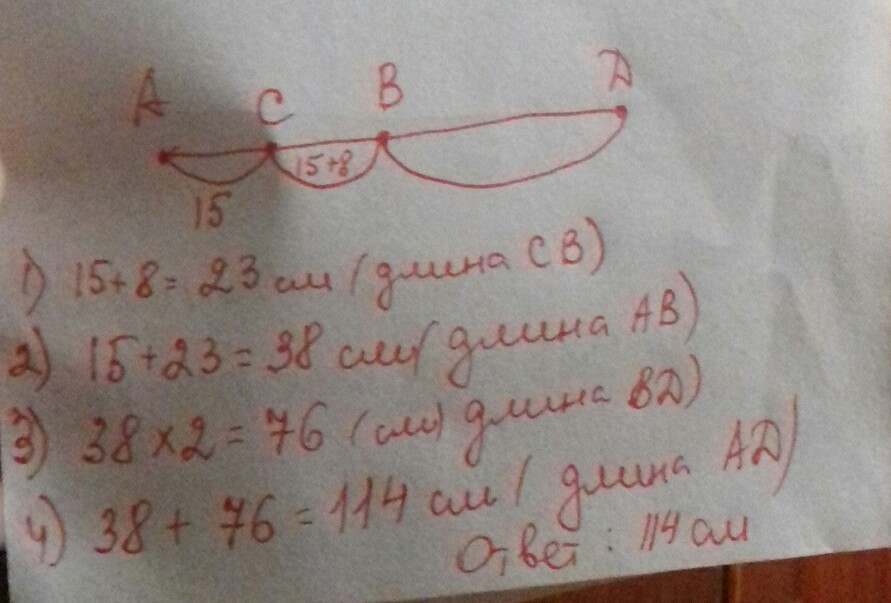 A C B D
15+8
15
1) 15+8= 23 см (длина CB)
2) 15+23=38 см( длина AB)
3) 38×2=76 (см) длина BD)
4) 38+ 76=114 см ( длина AD)
Ответ: 114 см